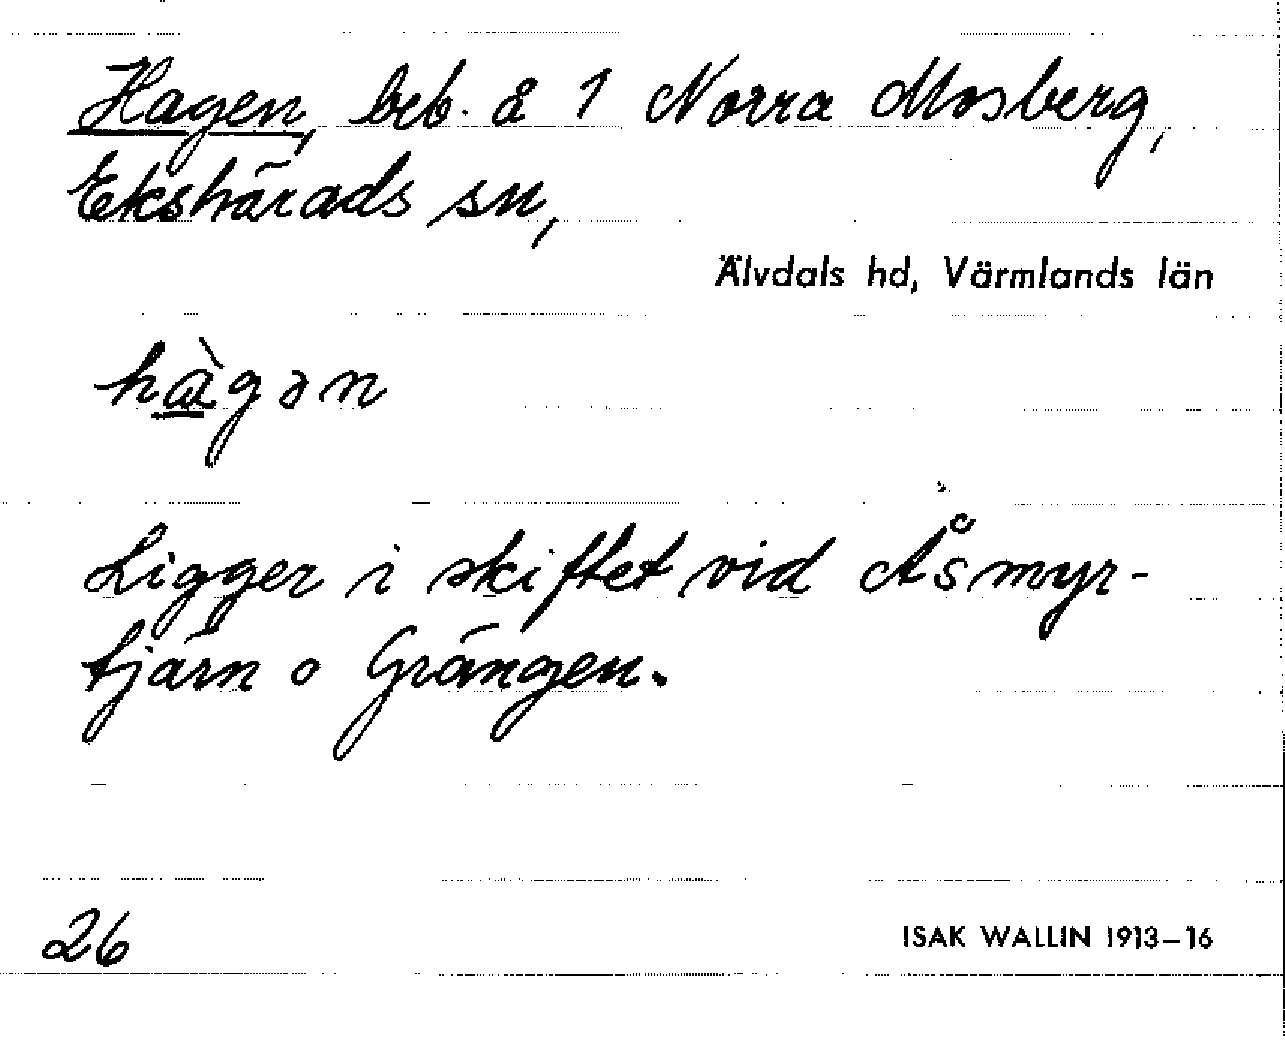 Hagen, beb. å 1 Norra Mosberg,
Ekshärads sn,
Älvdals hd, Värmlands län
hàgən
Ligger i skiftet vid Åsmyr-
tjärn o Grängen.
26
ISAK WALLIN 1913–16